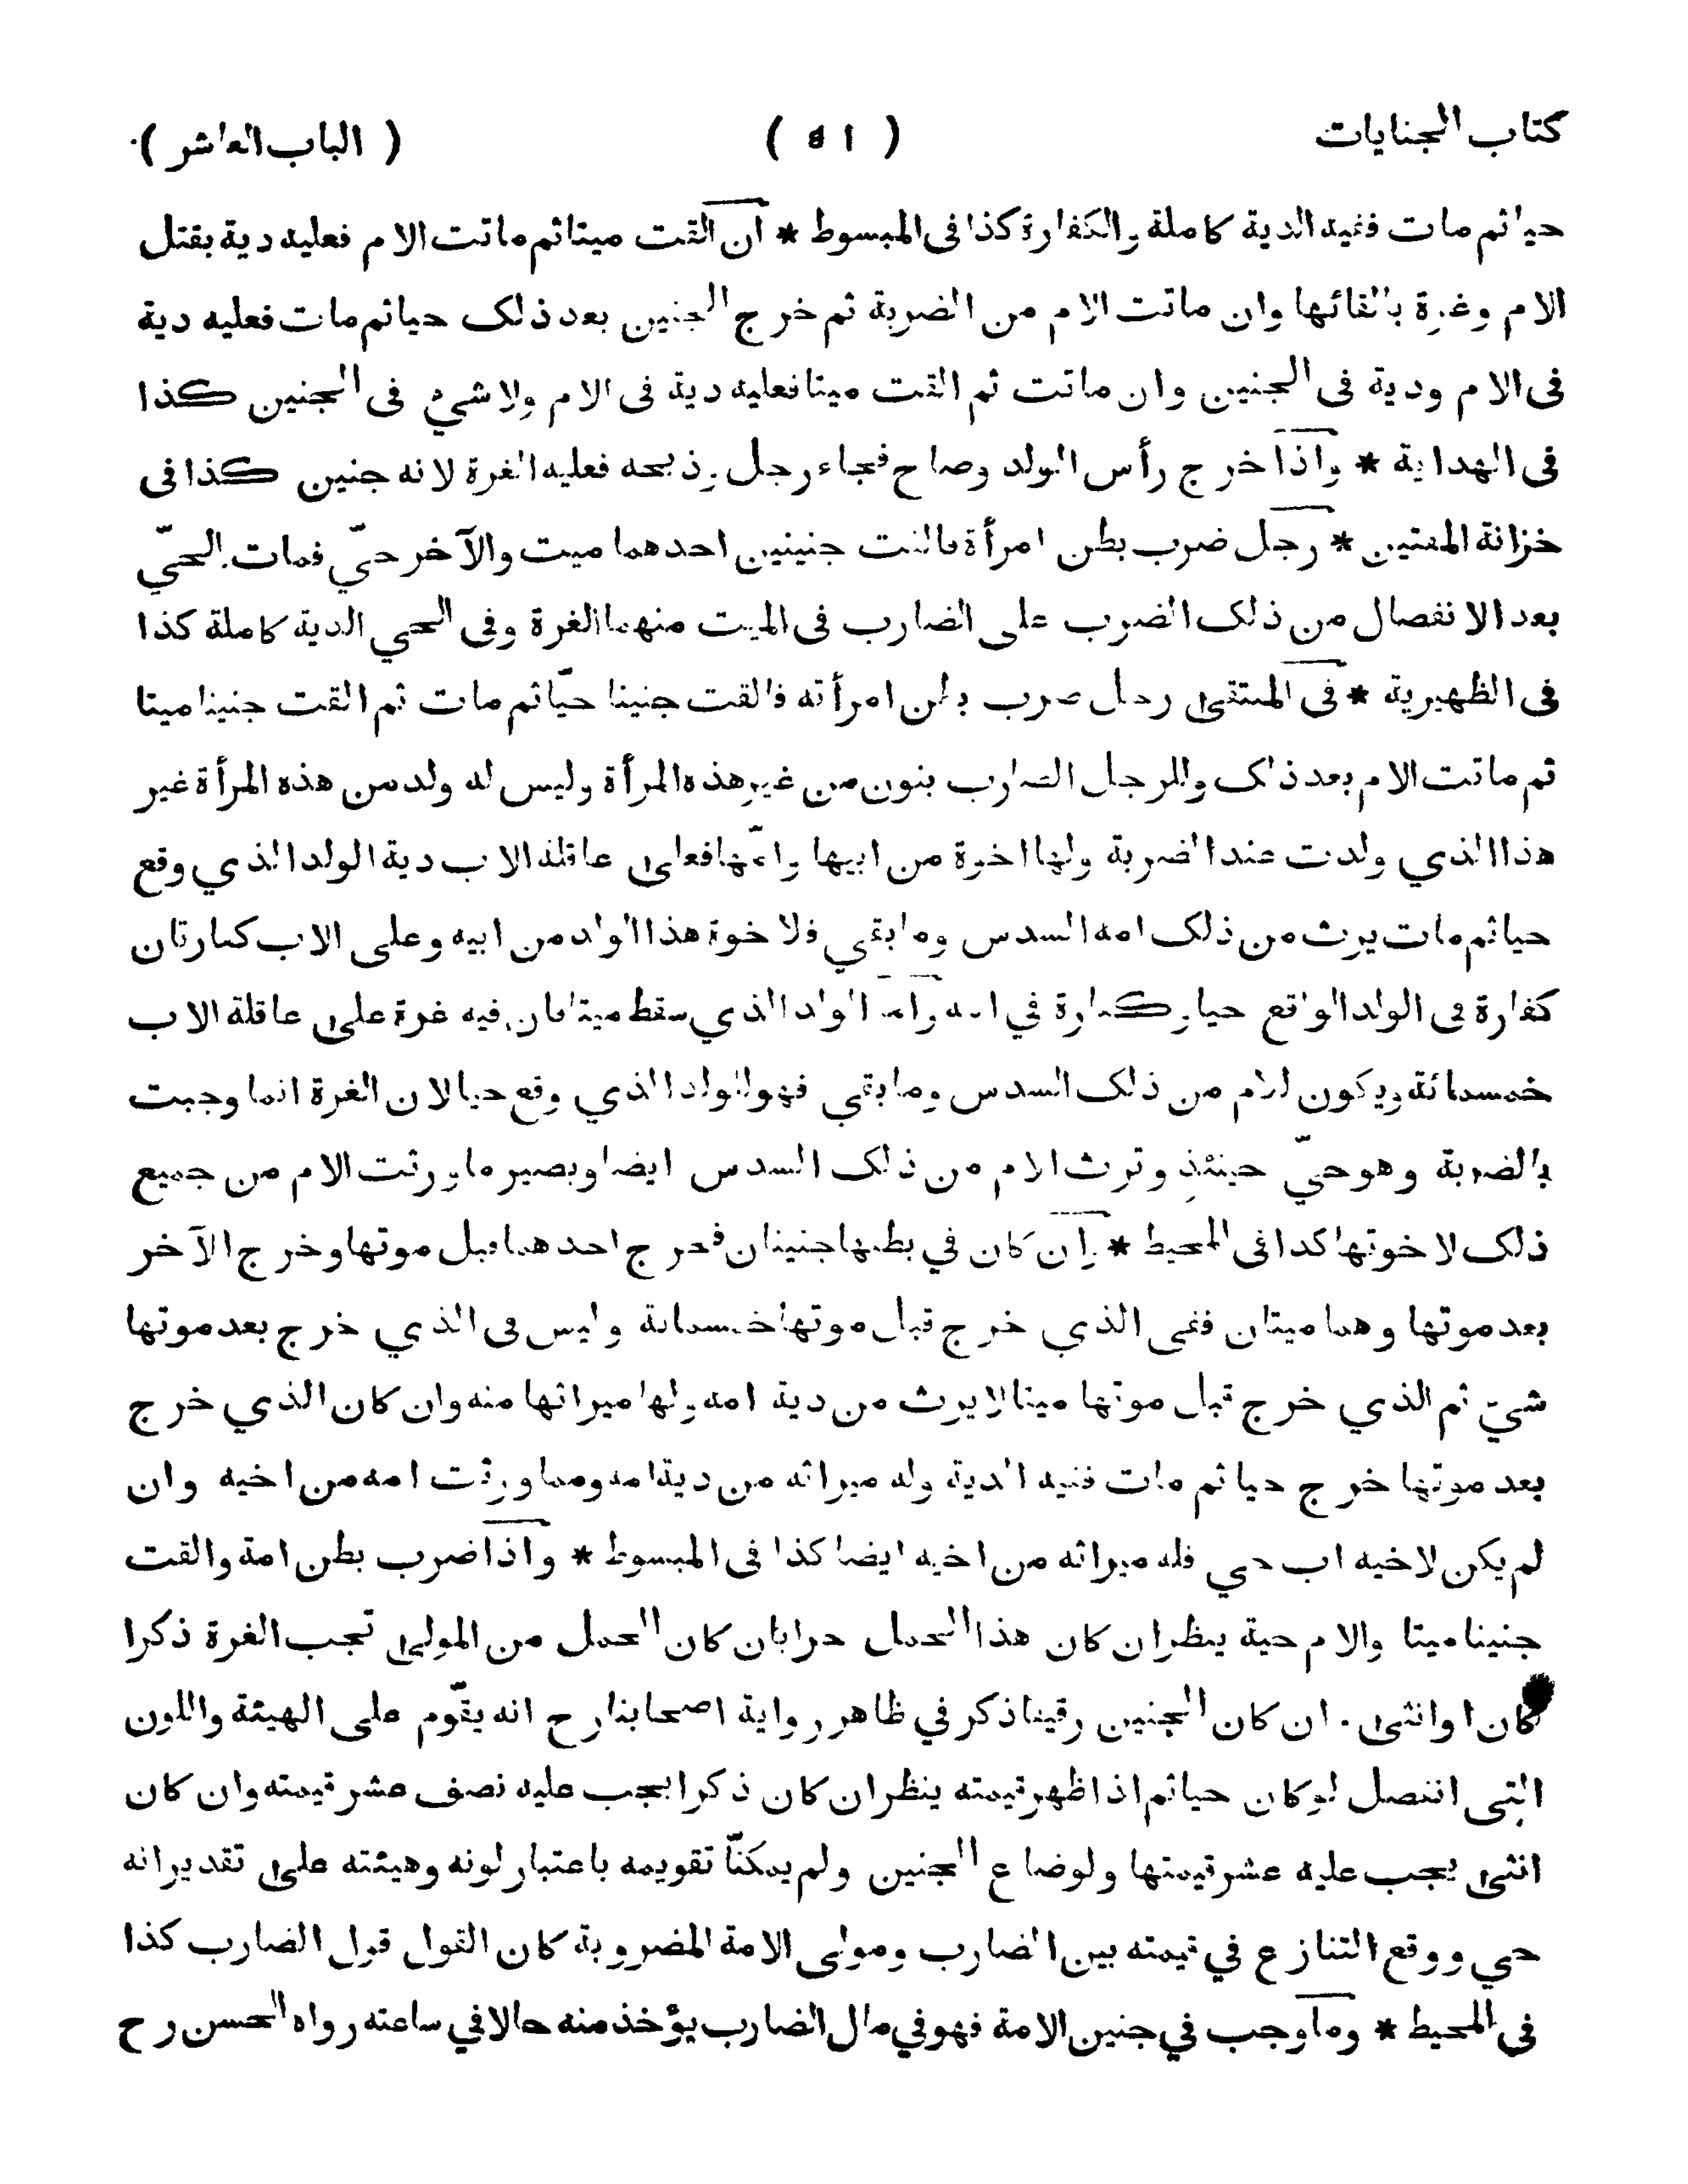 كتاب الجنايات ( ٥١ ) ( الباب العاشر )
حيا ثم مات ففيه الدية كاملة والكفارة كذا فى المبسوط * ان القت ميتا ثم ماتت الام فعليه دية بقتل
الام وغرة بالقائها وان ماتت الام من الضربة ثم خرج الجنين بعد ذلك حيا ثم مات فعليه دية
فى الام ودية فى الجنين وان ماتت ثم القت ميتا فعليه دية فى الام ولا شيء فى الجنين كذا
فى الهداية * واذا خرج رأس الولد وصاح فجاء رجل وذبحه فعليه الغرة لانه جنين كذا فى
خزانة المفتين * رجل ضرب بطن امرأة فالقت جنينين احدهما ميت والآخر حيّ فمات الحيّ
بعد الانفصال من ذلك الضرب على الضارب فى الميت منهما الغرة وفى الحي الدية كاملة كذا
فى الظهيرية * فى المنتقى رجل ضرب بطن امرأته فالقت جنينا حيّا ثم مات ثم القت جنينا ميتا
ثم ماتت الام بعد ذلك وللرجل الضارب بنون من غير هذه المرأة وليس له ولد من هذه المرأة غير
هذا الذي ولدت عند الضربة ولها اخوة من ابيها وامّها فعلى عاقلة الاب دية الولد الذي وقع
حيا ثم مات يرث من ذلك امه السدس وما بقي فلاخوة هذا الولد من ابيه وعلى الاب كفارتان
كفارة فى الولد الواقع حيا وكفارة في امه واما الولد الذي سقط ميتا فان فيه غرة على عاقلة الاب
خمسمائة ويكون للام من ذلك السدس وما بقي فهو للولد الذي وقع حيا لان الغرة انما وجبت
بالضربة وهو حيّ حينئذٍ وترث الام من ذلك السدس ايضا ويصير ما ورثت الام من جميع
ذلك لاخوتها كذا فى المحيط * ان كان في بطنها جنينان فخرج احدهما قبل موتها وخرج الآخر
بعد موتها وهما ميتان ففى الذي خرج قبل موتها خمسمائة وليس فى الذي خرج بعد موتها
شيّ ثم الذي خرج قبل موتها ميتا لا يرث من دية امه ولها ميراثها منه وان كان الذي خرج
بعد موتها خرج حيا ثم مات ففيه الدية وله ميراثه من دية امه ومما ورثت امه من اخيه وان
لم يكن لاخيه اب حي فله ميراثه من اخيه ايضا كذا فى المبسوط * واذا ضرب بطن امة والقت
جنينا ميتا والام حية ينظر ان كان هذا الحمل حرا بان كان الحمل من المولى تجب الغرة ذكرا
كان او انثى . ان كان الجنين رقيقا ذكر في ظاهر رواية اصحابنا رح انه يقّوم على الهيئة واللون
التى انفصل لو كان حيا ثم اذا ظهر قيمته ينظر ان كان ذكرا يجب عليه نصف عشر قيمته وان كان
انثى يجب عليه عشر قيمتها ولو ضاع الجنين ولم يمكنّا تقويمه باعتبار لونه وهيئته على تقدير انه
حي ووقع التنازع في قيمته بين الضارب ومولى الامة المضروبة كان القول قول الضارب كذا
فى المحيط * وما وجب في جنين الامة فهو في مال الضارب يؤخذ منه حالا في ساعته رواه الحسن رح